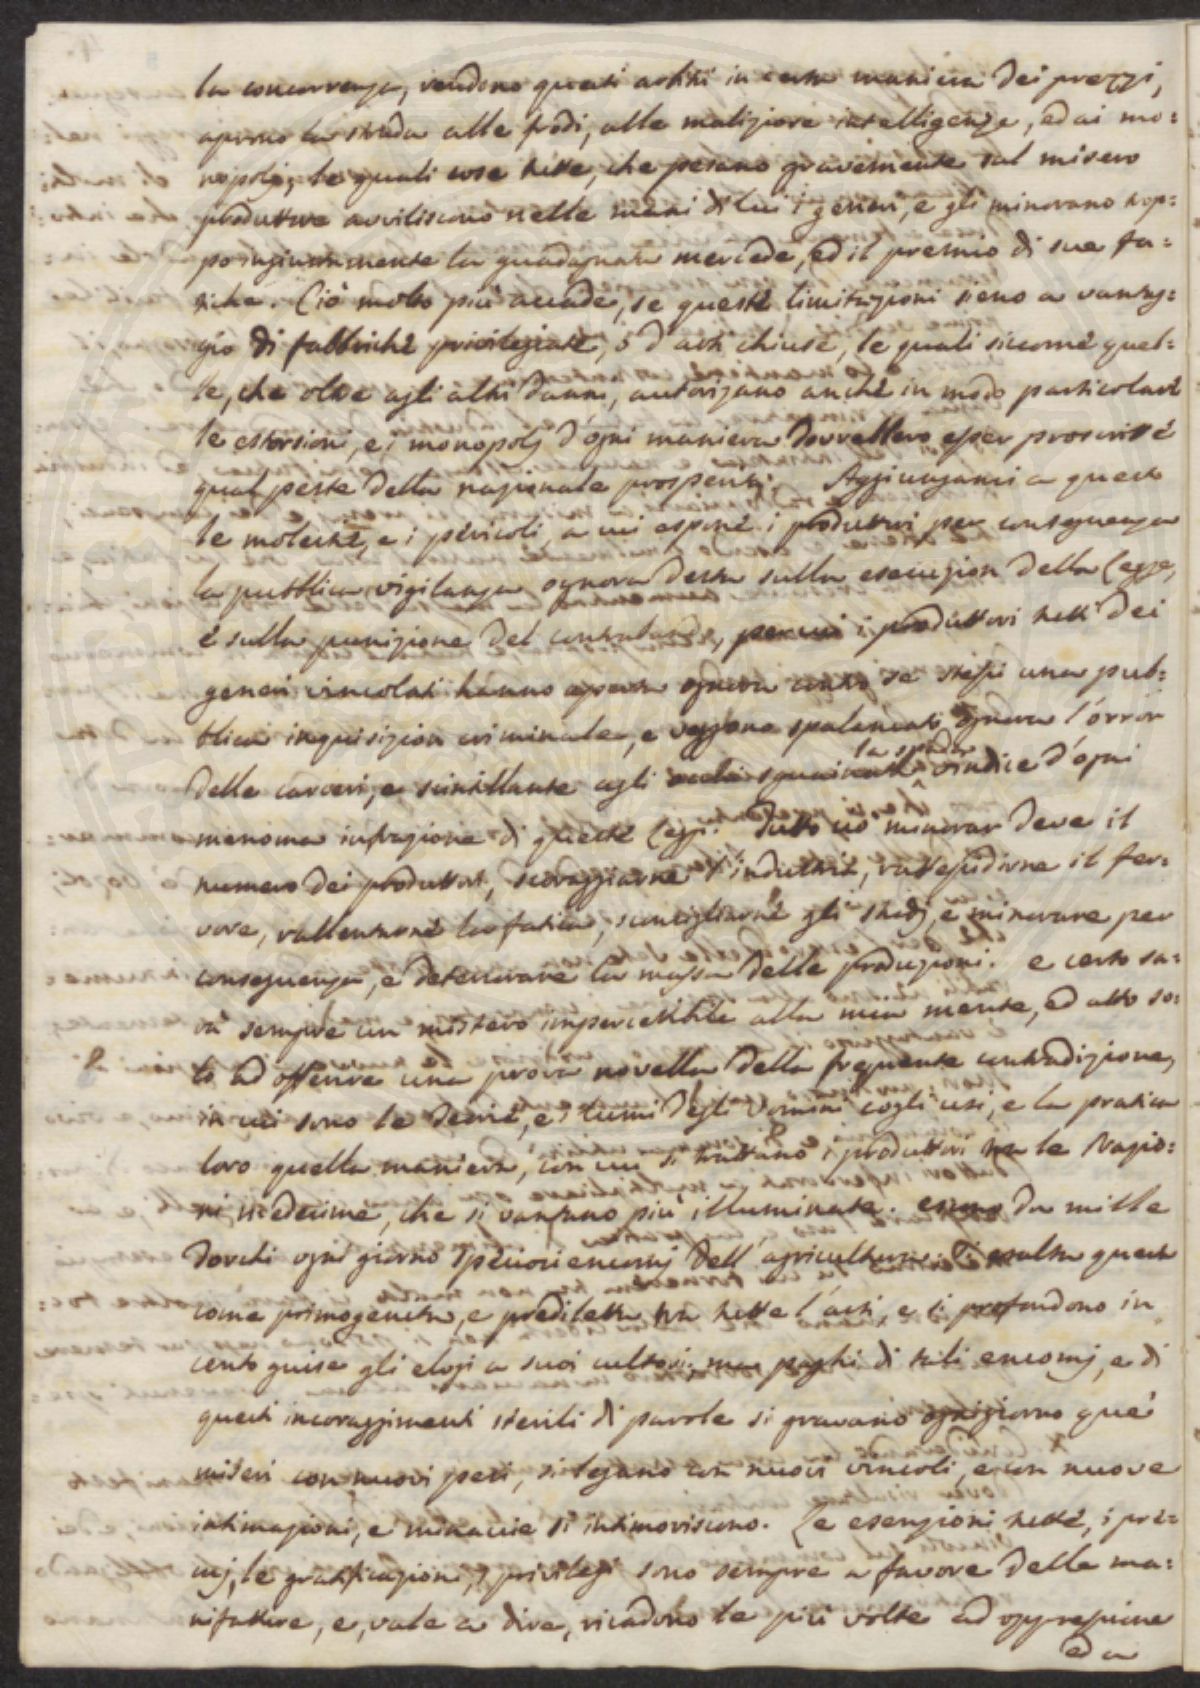 la concorrenza, rendono questi arbitri in certa maniera dei prezzi,
aprono la strada alle frodi, alle maliziose intelligenze, ed ai mo=
nopolj; le quali cose tutte, che pesano gravemente sul misero
produttore avviliscono nelle mani di lui i generi, e gli minorano sop=
po ingiustamente la guadagnata mercede, ed il premio di sue fa=
tiche. Ciò molto più accade, se queste limitazioni sieno a vantag=
gio di fabbriche privilegiate, o d'arti chiuse, le quali siccome quel=
le, che oltre agli altri danni, autorizano anche in modo particolare
le estorsioni, e i monopolj d'ogni maniera dovrebbero esser proscritte
qual peste della nazionale prosperità. Aggiungansi a questo
le molestie, e i pericoli, a cui espone i produttori per conseguenza
la pubblica vigilanza ognora desta sulla esecuzion della Legge,
e sulla punizione del contrabando, per cui i produttori tutti dei
generi vincolati hanno aperta ognora contro se stessi una pub=
blica inquisizion criminale, e veggono spalancato ognora l'orror
delle carceri, e scintillante agli occhi la spada vindice d'ogni
menoma infrazione di queste Leggi. Tutto ciò minorar deve il
numero dei produttori, scoraggiarne l'industria, rattepidirne il fer=
vore, rallentarne la fatica, sconsigliarne gli studj, e minorare per
conseguenza, e deteriorare la massa delle produzioni. e certo sa=
rà sempre un mistero impercettibile alla mia mente, ed atto so=
lo ad offerire una prova novella della frequente contradizione,
in cui sono le teorie, e i lumi degli Uomini cogli usi, e la pratica
loro quella maniera, con cui si trattano i produttori tra le Nazio=
ni medesime, che si vantano più illuminate. da mille
torchi ogni giorno speciosi encomj dell'agricoltura. Si esalta questa
come primogenita, e prediletta tra tutte l'arti, e si profondono in
cento guise gli elogj a suoi cultori; ma paghi di tali encomj, e di
questi incoraggimenti sterili di parole si gravano ogni giorno que'
miseri con nuovi pesi, si legano con nuovi vincoli, e con nuove
intimazioni, e minaccie si intimoriscono. Le esenzioni tutte, i pre=
mj, le gratificazioni, i privilegi sono sempre a favore delle ma=
nifatture, e, vale a dire, ricadono le più volte ad oppressione
ed a